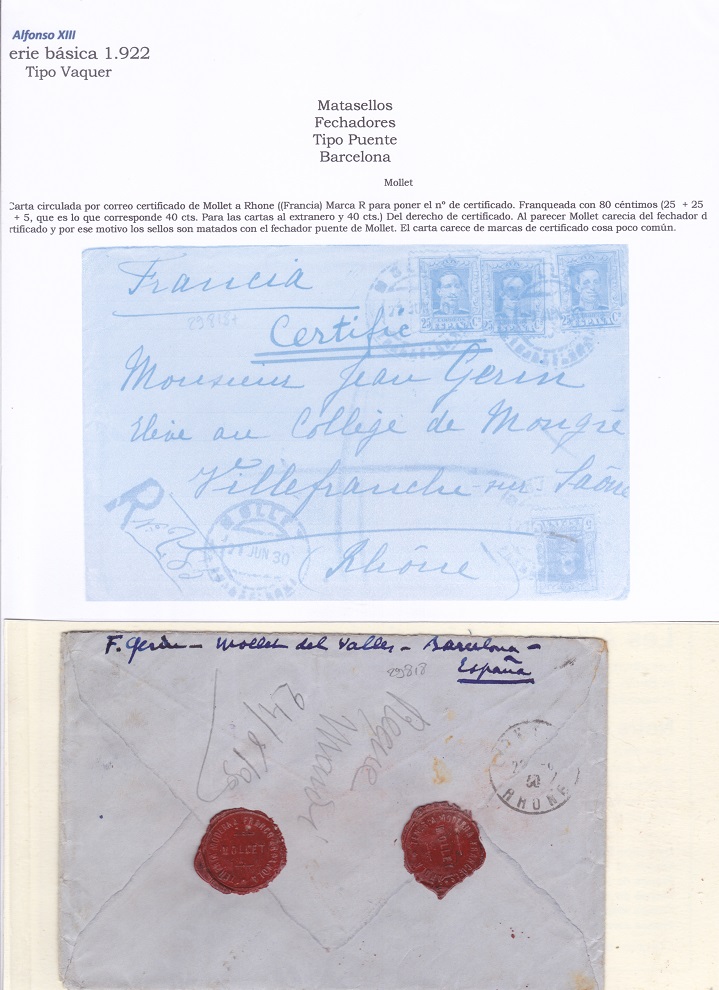 Alfonso XIII
erie básica 1.922
Tipo Vaquer
Matasellos
Fechadores
Tipo Puente
Barcelona
Mollet
Carta circulada por correo certificado de Mollet a Rhone ((Francia) Marca R para poner el nº de certificado. Franqueada con 80 céntimos (25 + 25
+ 5, que es lo que corresponde 40 cts. Para las cartas al extranero y 40 cts.) Del derecho de certificado. Al parecer Mollet carecia del fechador d
rtificado y por ese motivo los sellos son matados con el fechador puente de Mollet. El carta carece de marcas de certificado cosa poco común.
Francia
29818
Certific
25 ESPAÑA 25 ESPAÑA Cs 25 ESPAÑA Cs
Monsieur Jean Gerin
Elève au Collège de Mongré
Villefranche-sur-Saône
R
MOLLET
JUN 30
(Rhône)
F. Gerin - Mollet del Valles - Barcelona -
España
29818
RHONE
MOLLET
MOLLET